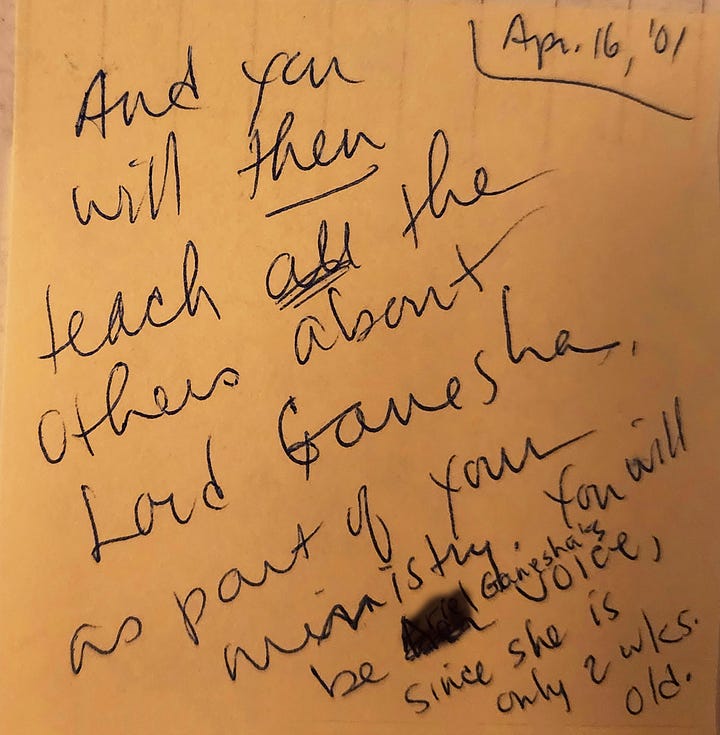 Apr. 16, '01
And you
will then
teach all the
others about
Lord Ganesha,
as part of your
ministry. You will
be Ganesha's voice,
since she is
only 2 wks.
old.